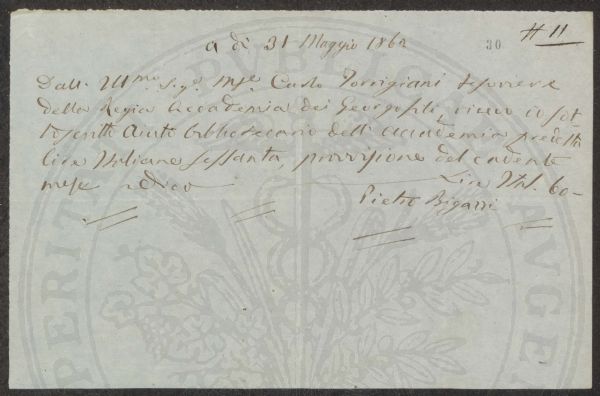 # 11
30
a dì 31 Maggio 1862
Dall. Ill.mo Sig.e Mse. Carlo Torrigiani Tesoriere
della Regia Accademia dei Georgofili ricevo io sot
toscritto Aiuto bibliotecario dell'Accademia predetta
lire Italiane sessanta, provvisione del cadente
mese e dico Lire Itnl. 60-
Pietro Bigazzi
PERITA
PUBLICAE
AUGE